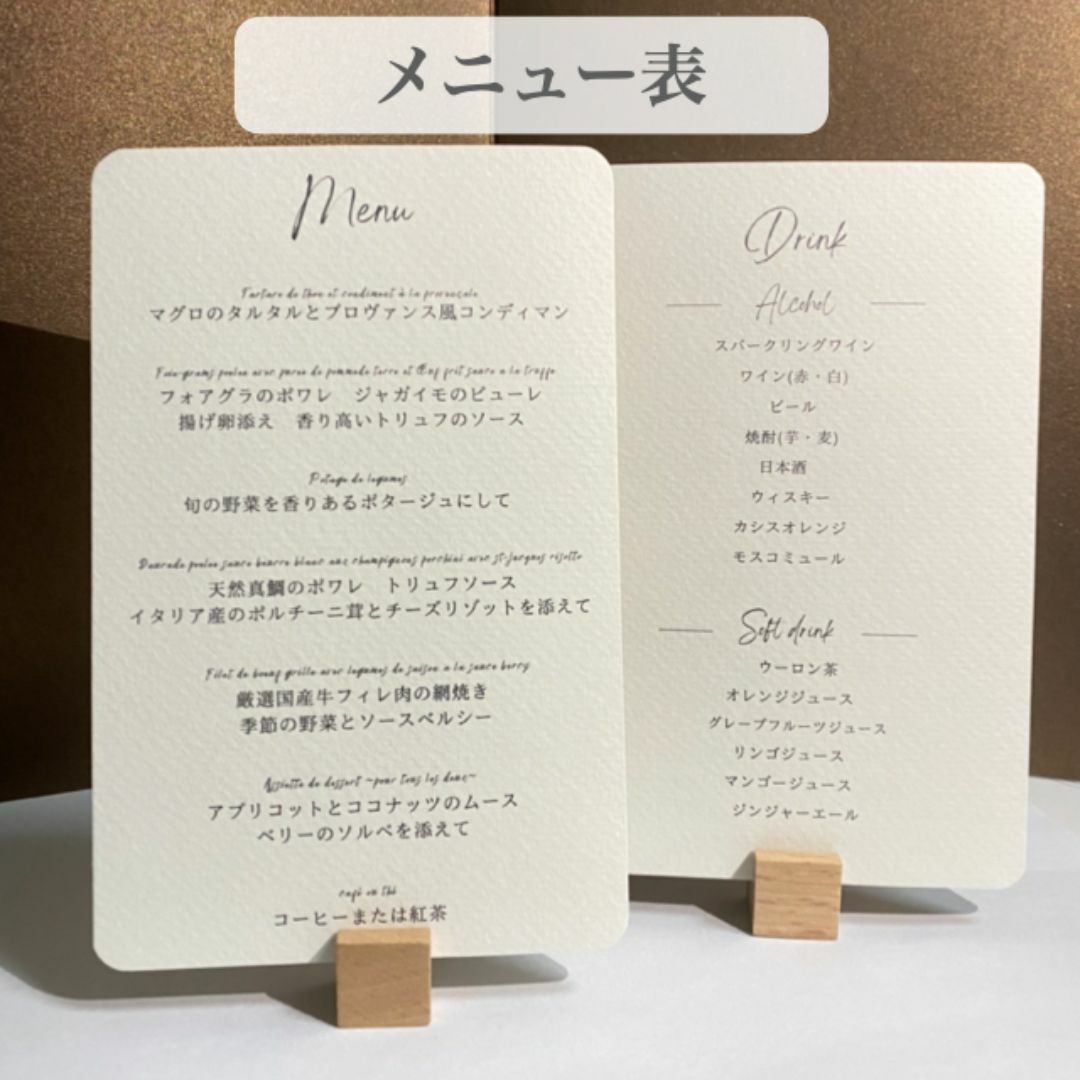 メニュー表
Menu
Tartare de thon et condiment à la provençale
マグロのタルタルとプロヴァンス風コンディマン
フォアグラのポワレ　ジャガイモのピューレ
揚げ卵添え　香り高いトリュフのソース
Potage de legumes
旬の野菜を香りあるポタージュにして
天然真鯛のポワレ　トリュフソース
イタリア産のポルチーニ茸とチーズリゾットを添えて
厳選国産牛フィレ肉の網焼き
季節の野菜とソースベルシー
Assiette de dessert ~pour tous les deux~
アブリコットとココナッツのムース
ベリーのソルベを添えて
café ou thé
コーヒーまたは紅茶
Drink
Alcohol
スパークリングワイン
ワイン(赤・白)
ビール
焼酎(芋・麦)
日本酒
ウィスキー
カシスオレンジ
モスコミュール
Soft drink
ウーロン茶
オレンジジュース
グレープフルーツジュース
リンゴジュース
マンゴージュース
ジンジャーエール